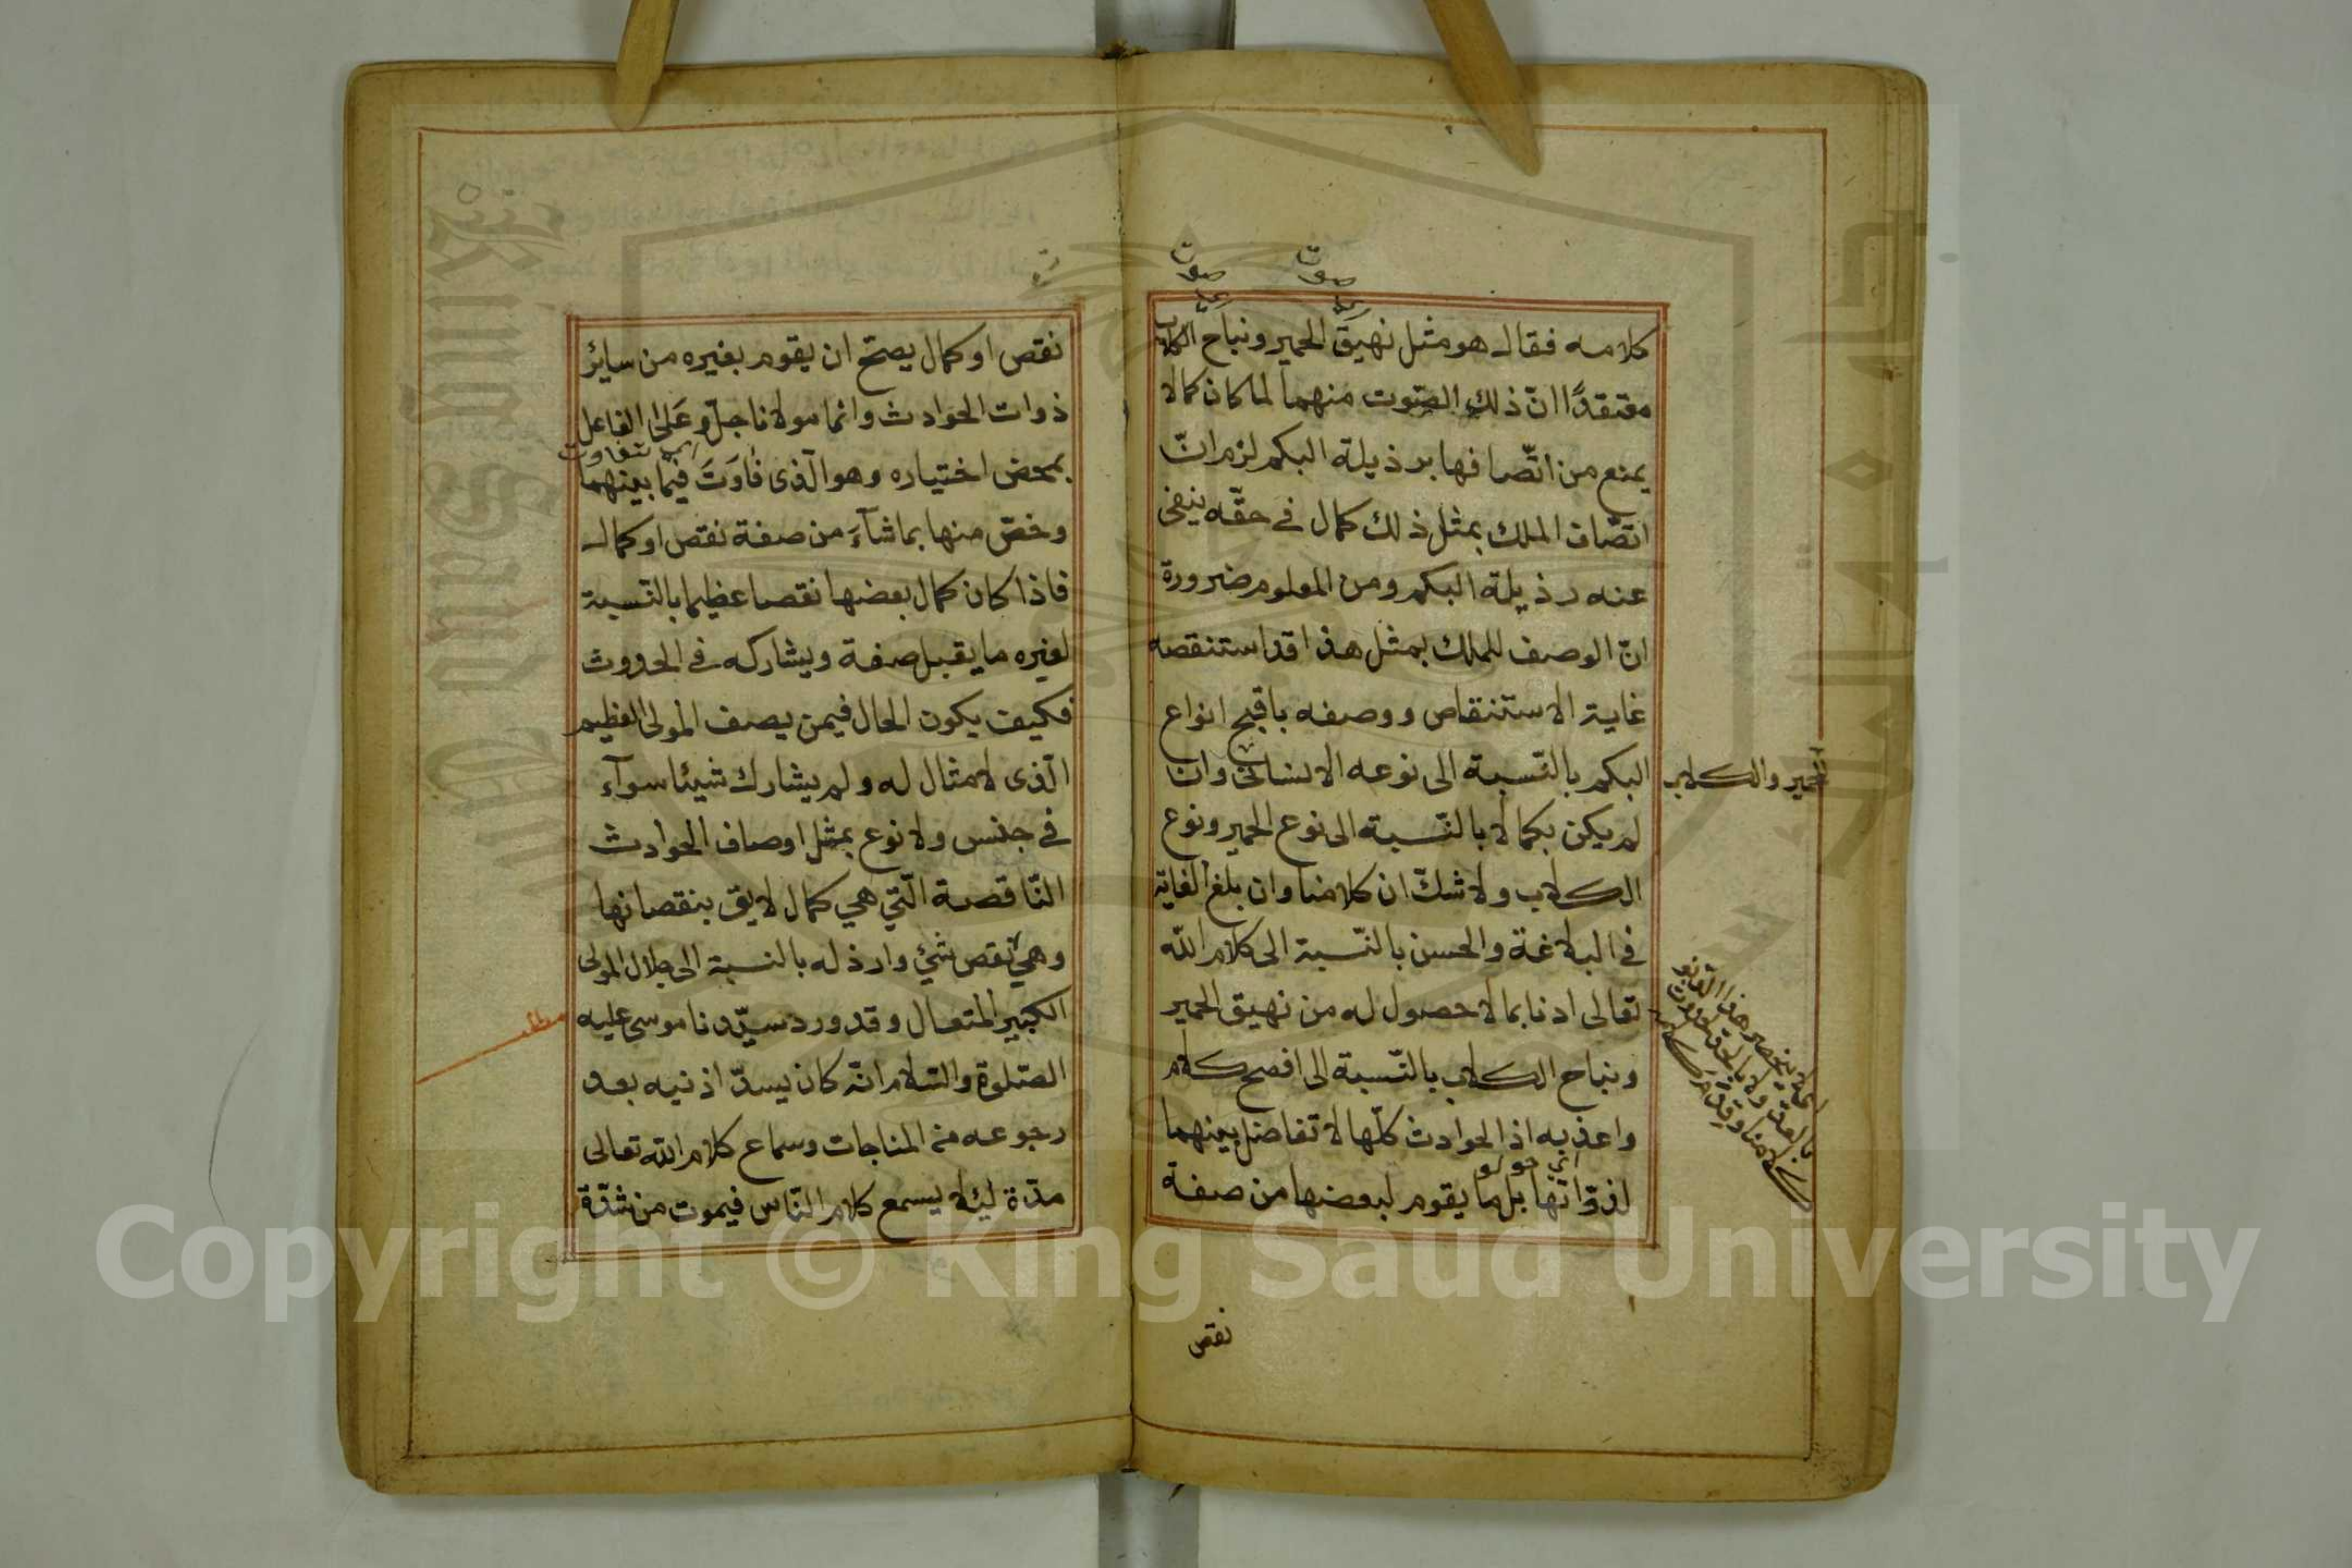 صوت
صوت
كلامه فقال هو مثل نهيق الحمير ونباح الكلاب
معتقدًا انّ ذلك الصّوت منهما لما كان كمالا
يمنع من اتّصافها برذيلة البكم لزم انّ
اتّصاف الملك بمثل ذلك كمال فى حقّه ينفى
عنه رذيلة البكم ومن المعلوم ضرورة
انّ الوصف للملك بمثل هذا قد استنقصه
غاية الاستنقاص ووصفه باقبح انواع
البكم بالنّسبة الى نوعه الانسانى وان
لم يكن بكما لا بالنّسبة الى نوع الحمير ونوع
الكلاب ولا شكّ ان كلامنا وان بلغ الغاية
فى البلاغة والحسن بالنّسبة الى كلام الله
تعالى ادنا بما لا حصول له من نهيق الحمير
ونباح الكلاب بالنّسبة الى افصح كلام
واعذبه اذ الحوادث كلّها لا تفاضل بينهما
لذوّاتها بل ما يقوم لبعضها من صفة
الحمير والكلاب
نقص
نقص او كمال يصحّ ان يقوم بغيره من سائر
ذوات الحوادث وانما مولانا جلّ وعَلىٰ الفاعل
بمحض اختياره وهو الّذى فٰاوَتَ فيما بينهما
وخصّ منها بما شآءَ من صفة نقص او كمال
فاذا كان كمال بعضها نقصا عظيما بالنّسبة
لغيره ما يقبل صفة ويشاركه فى الحدوث
فكيف يكون الحال فيمن يصف المولى العظيم
الّذى لا مثال له ولم يشارك شيئا سوآء
فى جنس ولا نوع بمثل اوصاف الحوادث
النّاقصة الّتى هى كمال لايق بنقصانها
وهى نقص شئ وارذله بالنسبة الى جلال المولى
الكبير المتعال وقد ورد سيّدنا موسى عليه
الصّلوة والسّلام انّه كان يسدّ اذنيه بعد
رجوعه من المناجات وسماع كلام الله تعالى
مدّة ليلا يسمع كلام النّاس فيموت من شدّة
مطلب
Copyright © King Saud University